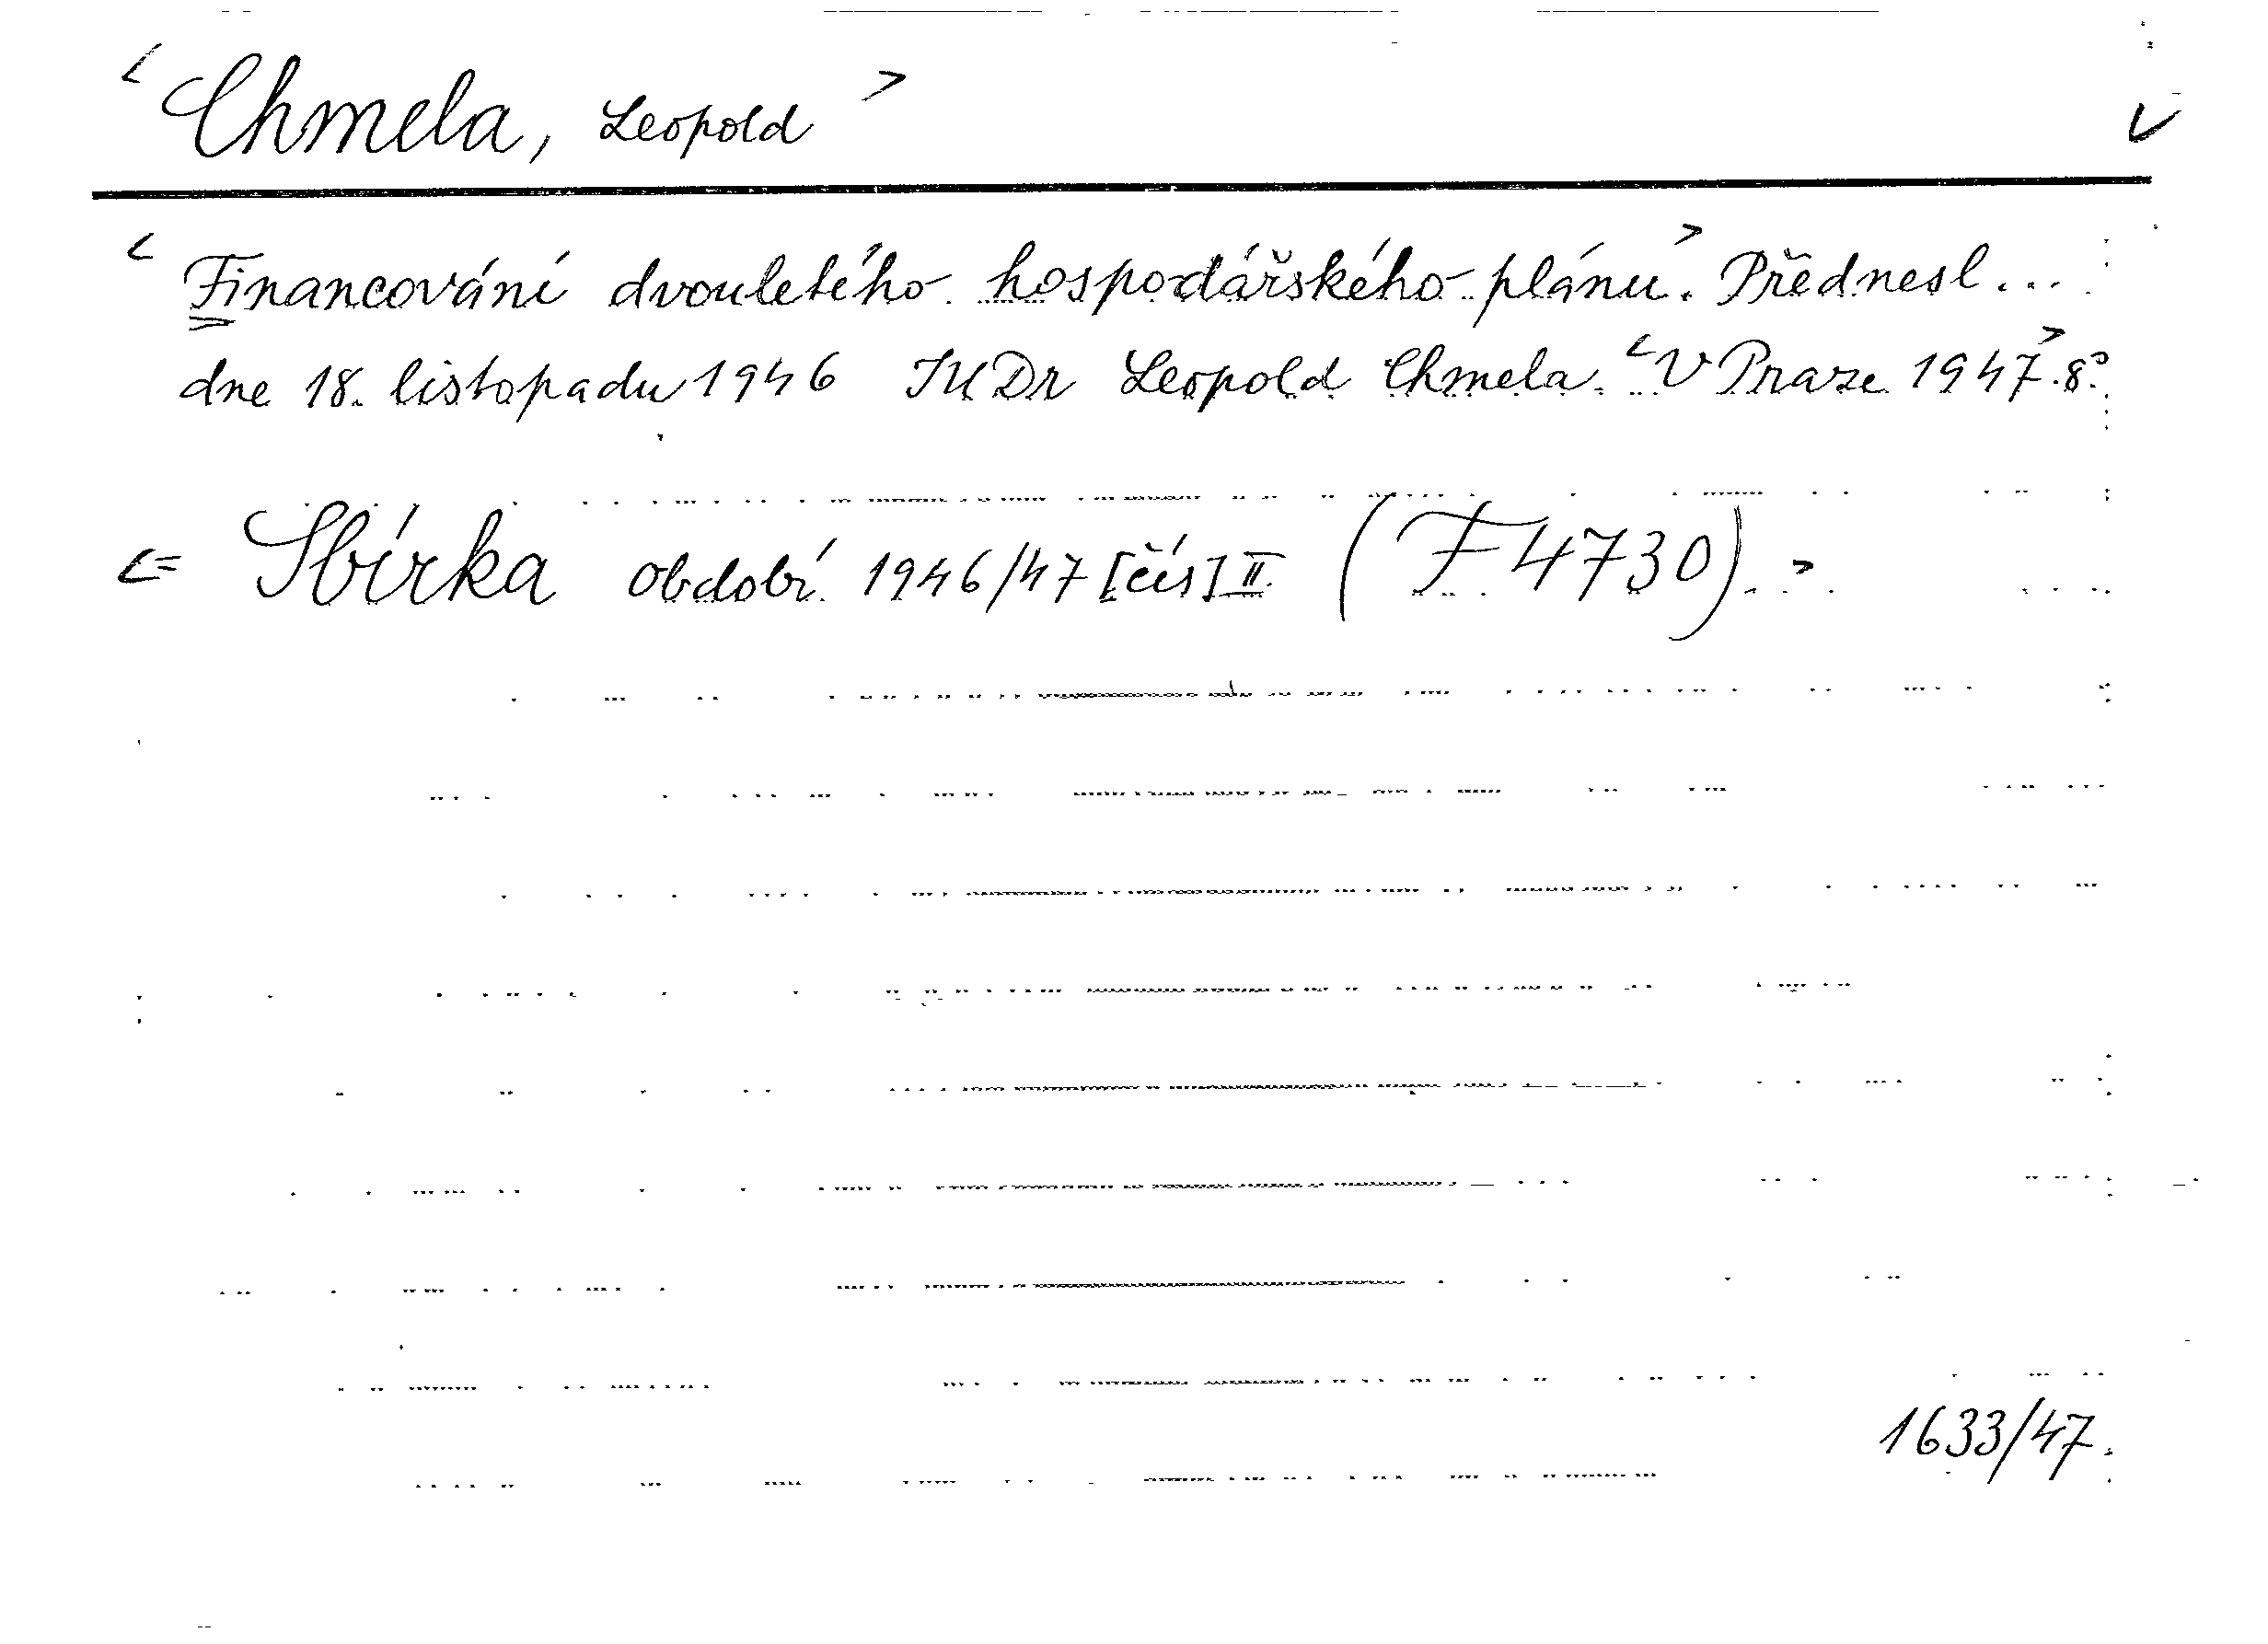 < Chmela, Leopold > V
< Financování dvouletého hospodářského plánu. > Přednesl...
dne 18. listopadu 1946 JUDr Leopold Chmela. < V Praze 1947. > 8°.
<= Sbírka období 1946/47 [čís] II. (F 4730). >
1633/47.